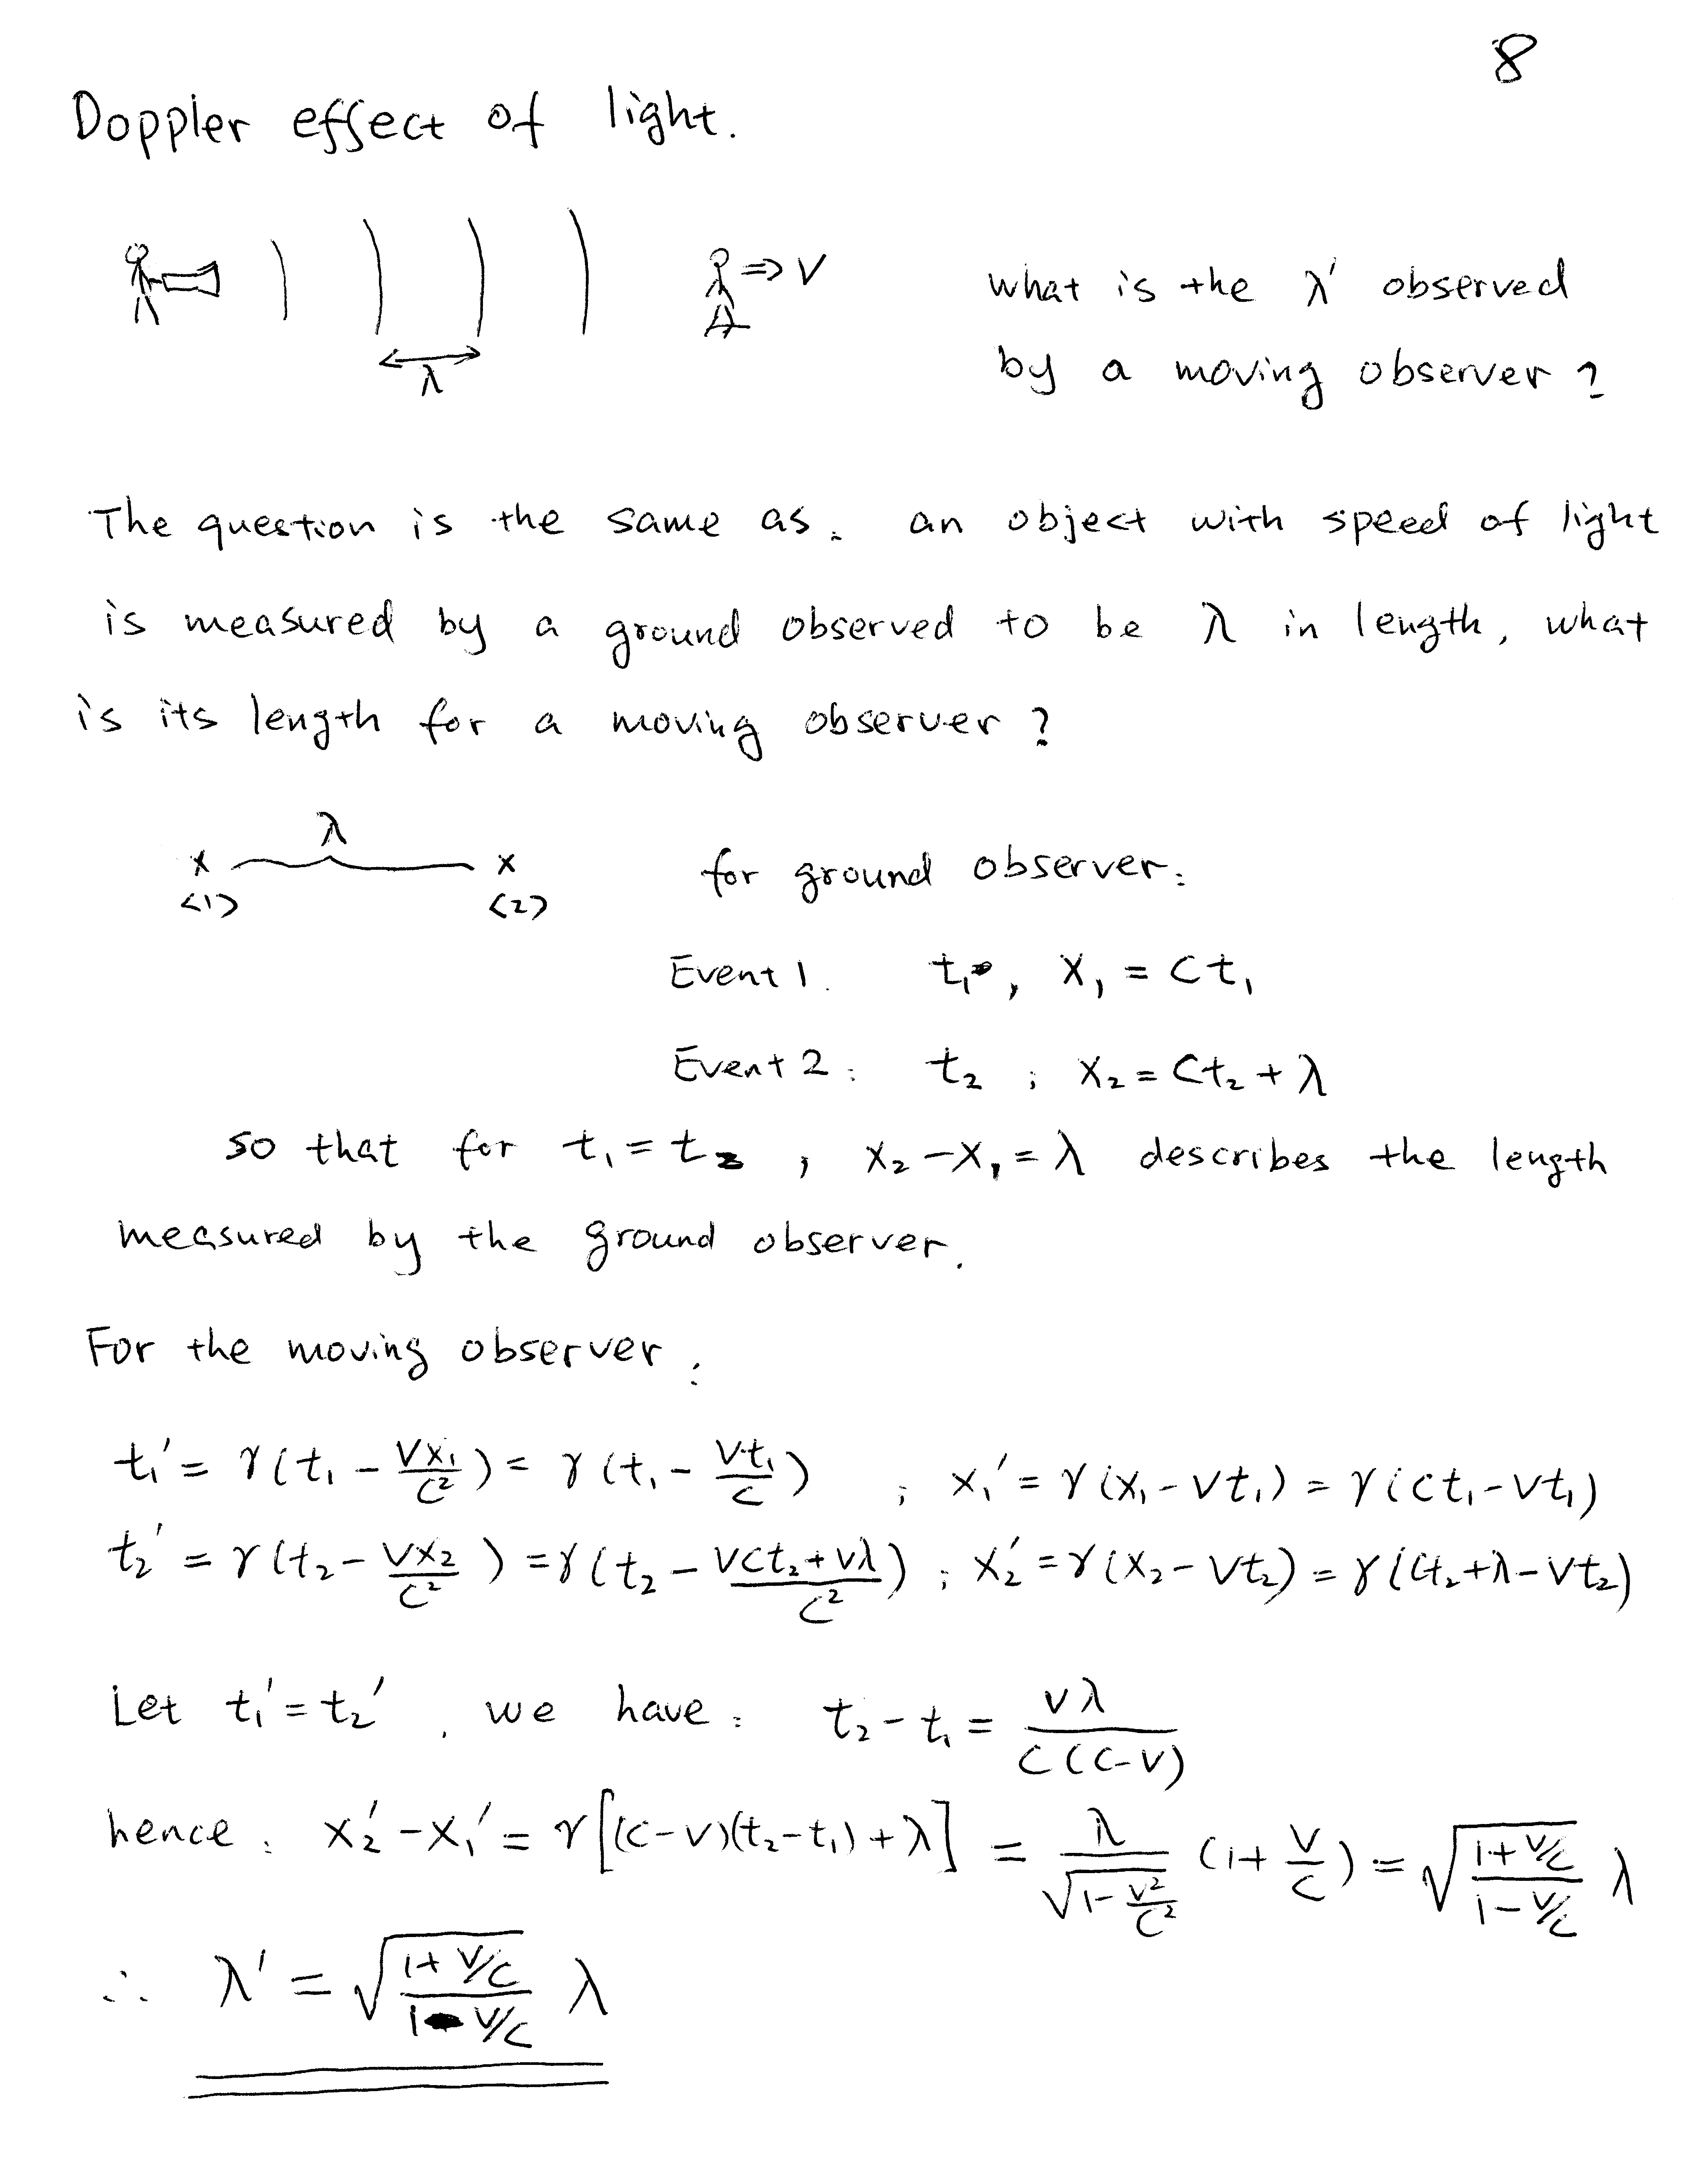 8
Doppler effect of light.
⇒ V
λ
what is the λ' observed
by a moving observer ?
The question is the same as: an object with speed of light
is measured by a ground observed to be λ in length, what
is its length for a moving observer ?
λ
x x
<1> <2>
for ground observer:
Event 1. t₁, x₁ = ct₁
Event 2: t₂ ; x₂ = ct₂ + λ
so that for t₁ = t₂ , x₂ - x₁ = λ describes the length
measured by the ground observer.
For the moving observer:
t₁' = γ(t₁ - Vx₁/c²) = γ(t₁ - Vt₁/c) ; x₁' = γ(x₁ - Vt₁) = γ(ct₁ - Vt₁)
t₂' = γ(t₂ - Vx₂/c²) = γ(t₂ - (Vct₂ + Vλ)/c²) ; x₂' = γ(x₂ - Vt₂) = γ(ct₂ + λ - Vt₂)
Let t₁' = t₂' , we have: t₂ - t₁ = Vλ/(c(c-V))
hence: x₂' - x₁' = γ[(c-V)(t₂-t₁) + λ] = λ/√(1 - V²/c²) (1 + V/c) = √((1+V/c)/(1-V/c)) λ
∴ λ' = √((1+V/c)/(1-V/c)) λ